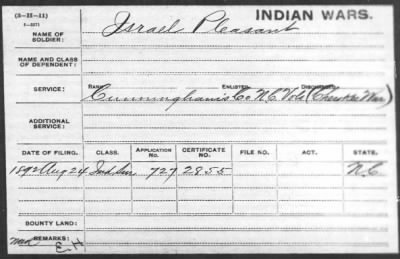 (3-II-11)
INDIAN WARS.
NAME OF SOLDIER: Israel Pleasant
NAME AND CLASS OF DEPENDENT:
RANK ENLISTED DISCHARGED
SERVICE: Cunningham's Co N.C. Vols (Cherokee War)
ADDITIONAL SERVICE:
DATE OF FILING. CLASS. APPLICATION No. CERTIFICATE NO. FILE NO. ACT. STATE.
1892 Aug 24 Ind Sur 727 2855 N.C.
BOUNTY LAND:
REMARKS:
E-H